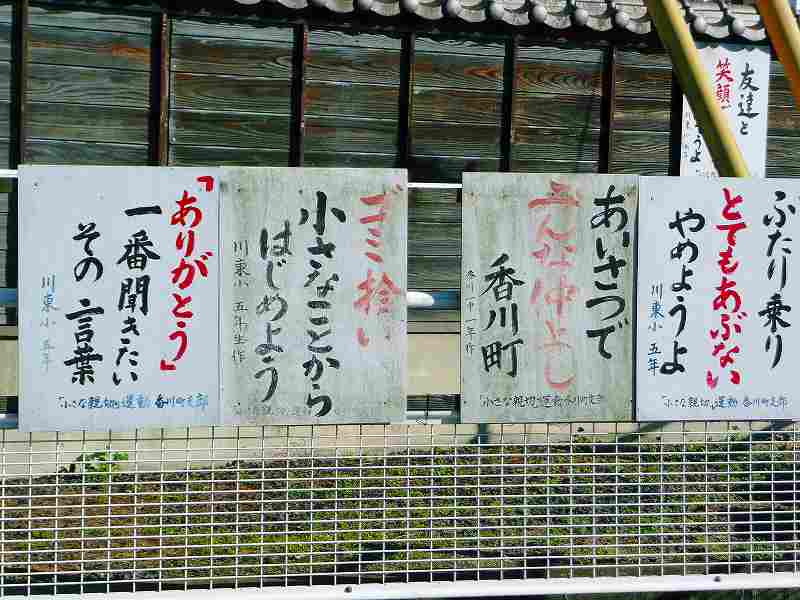 友達と
笑顔
ぶたり乗り
とてもあぶない
やめようよ
川東小 五年
「小さな親切」運動 香川町支部
あいさつで
みんな仲よし
香川町
香川一中一年作
「小さな親切」運動香川町支部
ゴミ捨い
小さなことから
はじめよう
川東小 五年生作
「小さな親切」運動
「ありがとう」
一番聞きたい
その言葉
川東小 五年
「小さな親切」運動 香川町支部